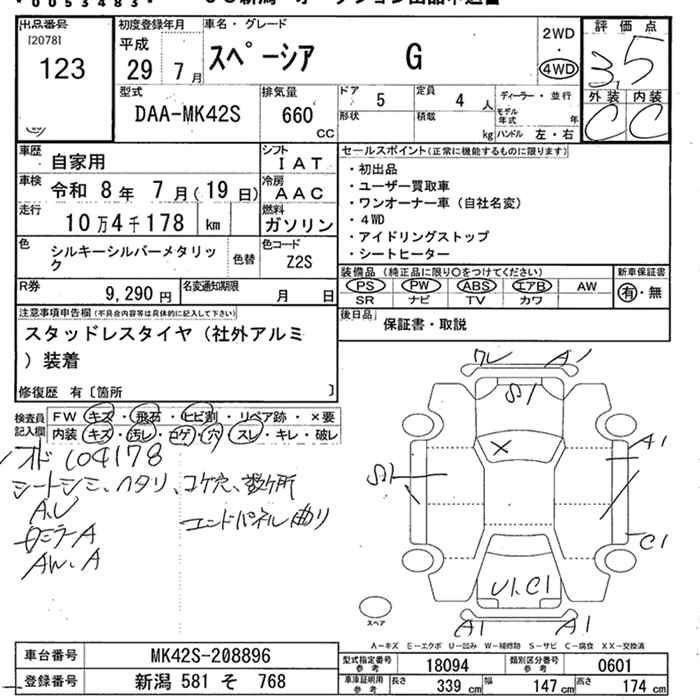 *0053483*
出品番号
[2078]
123
初度登録年月
平成
29年 7月
車名・グレード
スペーシア G
2WD
・
4WD
評価点
3.5
外装 内装
C C
型式
DAA-MK42S
排気量
660
CC
ドア
5
形状
定員
4 人
積載
kg
ディーラー・並行
モデル年式 年
ハンドル 左・右
車歴
自家用
車検
令和 8年 7月(19日)
走行
10万4千178 km
シフト
IAT
冷房
AAC
燃料
ガソリン
色
シルキーシルバーメタリック
色替
色コード
Z2S
R券
9,290円
名変通知期限
月 日
セールスポイント(正常に機能するものに限ります)
・初出品
・ユーザー買取車
・ワンオーナー車(自社名変)
・4WD
・アイドリングストップ
・シートヒーター
装備品(純正品に限り○をつけてください)
PS PW ABS エアB AW
SR ナビ TV カワ
新車保証書
有・無
後日品
保証書・取説
注意事項申告欄(不具合内容等は具体的に記入して下さい)
スタッドレスタイヤ(社外アルミ
)装着
修復歴 有〔箇所 〕
検査員記入欄
FW キズ・飛石・ヒビ割・リペア跡・×要
内装 キズ・汚レ・コゲ・穴・スレ・キレ・破レ
オド 104178
シートシミ、ヘタリ、コゲ穴、数ヶ所
A,U
エンドパネル曲り
ミラーA
AW、A
ワレ A1
S1
X
A1
S1
C1
U1、C1
A1 A1
スペア
A-キズ E-エクボ U-凹み W-補修跡 S-サビ C-腐食 XX-交換済
車台番号
MK42S-208896
登録番号
新潟 581 そ 768
型式指定番号 参考
18094
類別区分番号 参考
0601
車庫証明用 参考
長さ 339 cm 幅 147 cm 高さ 174 cm